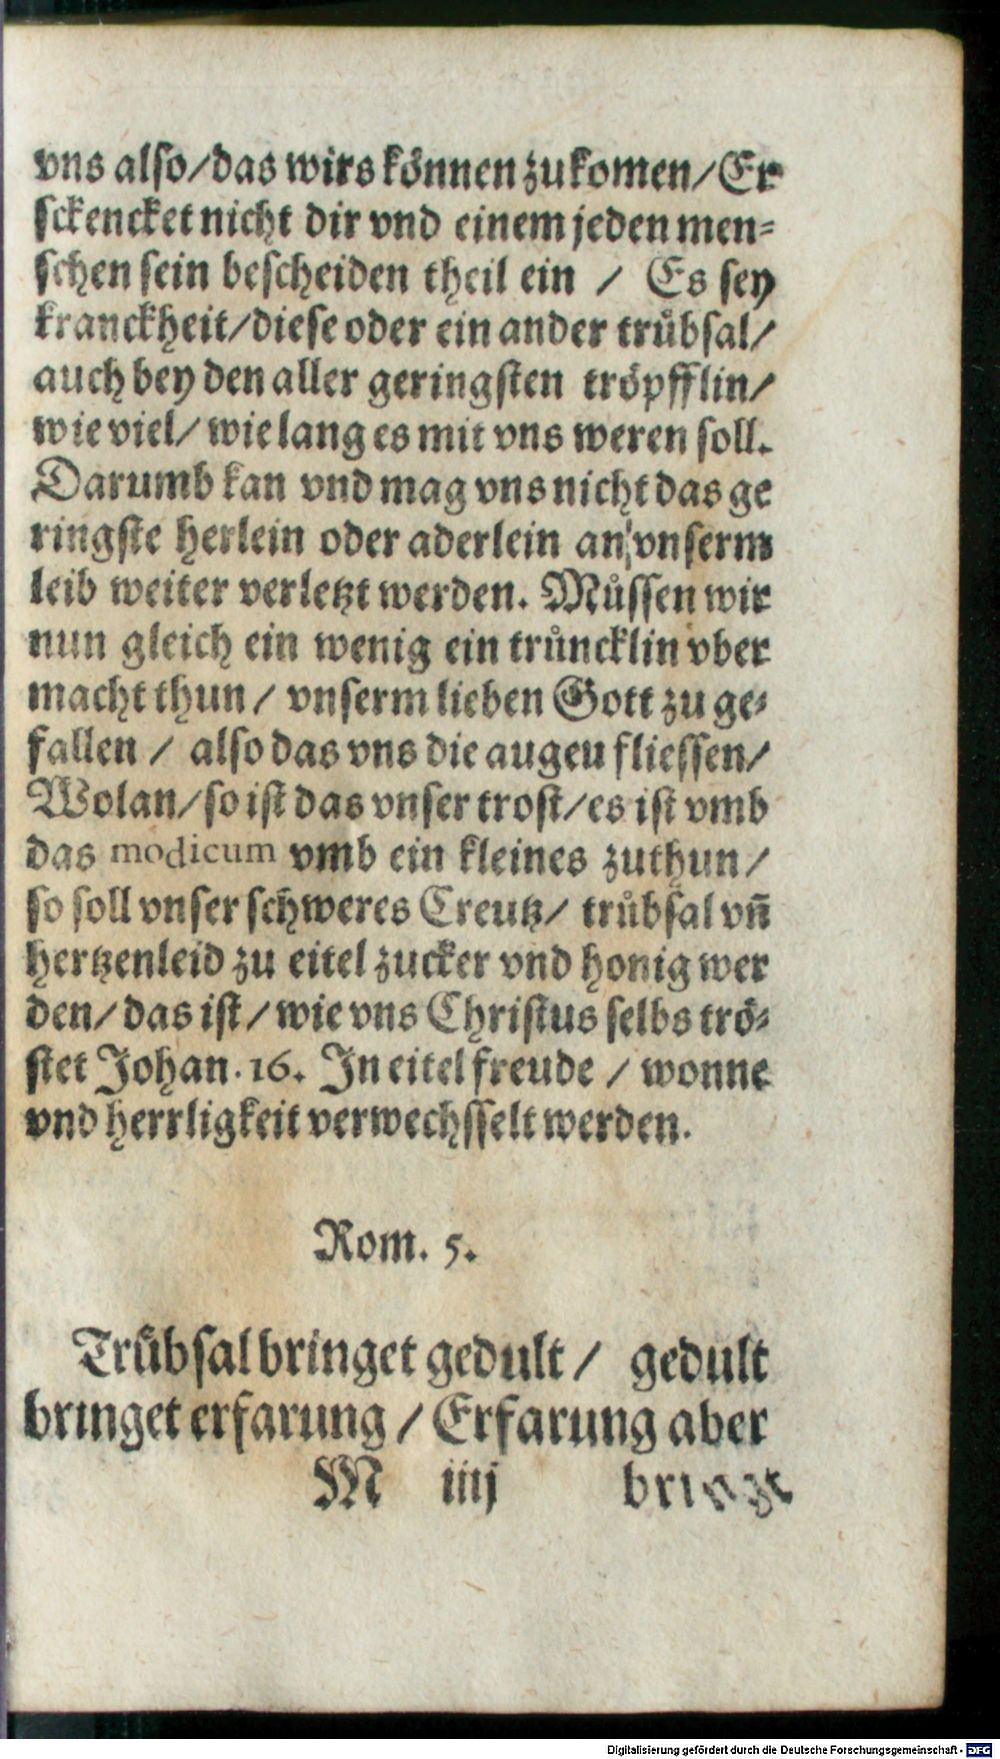 vns also/das wirs können zukomen/Er
sckencket nicht dir vnd einem jeden men=
schen sein bescheiden theil ein / Es sey
kranckheit/diese oder ein ander trůbsal/
auch bey den aller geringsten tröpfflin/
wie viel/ wie lang es mit vns weren soll.
Darumb kan vnd mag vns nicht das ge
ringste herlein oder aderlein an vnserm
leib weiter verletzt werden. Můssen wir
nun gleich ein wenig ein trůncklin vber
macht thun / vnserm lieben Gott zu ge=
fallen / also das vns die augeu fliessen/
Wolan/so ist das vnser trost/es ist vmb
das modicum vmb ein kleines zuthun/
so soll vnser schweres Creutz/ trůbsal vñ
hertzenleid zu eitel zucker vnd honig wer
den/das ist/wie vns Christus selbs trö=
stet Johan. 16. In eitel freude / wonne
vnd herrligkeit verwechsselt werden.
Rom. 5.
Trůbsal bringet gedult / gedult
bringet erfarung / Erfarung aber
M iiij
Digitalisierung gefördert durch die Deutsche Forschungsgemeinschaft - DFG